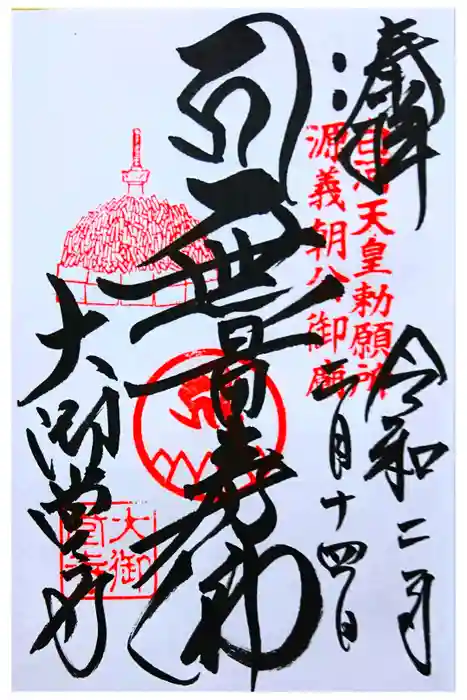 奉拝
白河天皇勅願所
源義朝公御廟
令和二年
二月十四日
無量寿佛
大御堂寺
大御堂寺